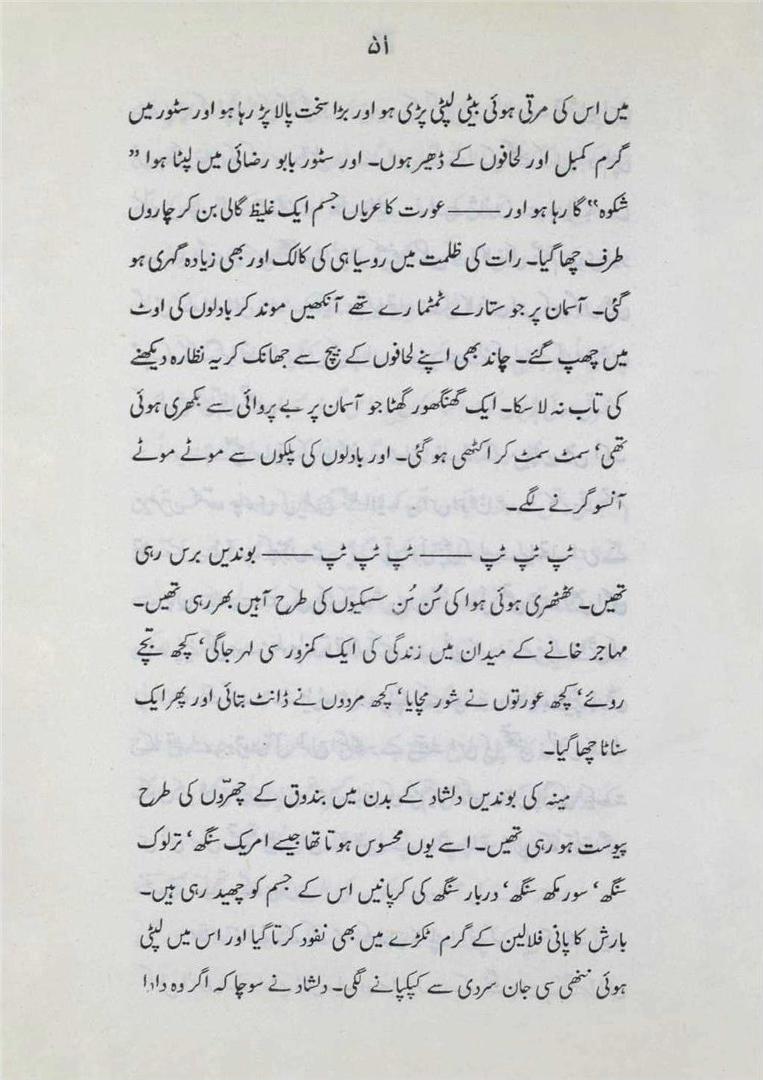 ۵۱
میں اس کی مرتی ہوئی بیٹی لپٹی پڑی ہو اور بڑا سخت پالا پڑ رہا ہو اور سٹور میں
گرم کمبل اور لحافوں کے ڈھیر ہوں۔ اور سٹور بابو رضائی میں لپٹا ہوا ”
شکوہ“ گا رہا ہو اور ——— عورت کا عریاں جسم ایک غلیظ گالی بن کر چاروں
طرف چھا گیا۔ رات کی ظلمت میں روسیاہی کی کالک اور بھی زیادہ گہری ہو
گئی۔ آسمان پر جو ستارے ٹمٹما رے تھے آنکھیں موند کر بادلوں کی اوٹ
میں چھپ گئے۔ چاند بھی اپنے لحافوں کے بیچ سے جھانک کر یہ نظارہ دیکھنے
کی تاب نہ لا سکا۔ ایک گھنگھور گھٹا جو آسمان پر بے پروائی سے بکھری ہوئی
تھی‘ سمٹ سمٹ کر اکٹھی ہو گئی۔ اور بادلوں کی پلکوں سے موٹے موٹے
آنسو گرنے لگے۔
ٹپ ٹپ ٹپ ——— ٹپ ٹپ ٹپ ——— بوندیں برس رہی
تھیں۔ ٹھٹھری ہوئی ہوا کی سُن سُن سسکیوں کی طرح آہیں بھر رہی تھیں۔
مہاجر خانے کے میدان میں زندگی کی ایک کمزور سی لہر جاگی‘ کچھ بچے
روئے‘ کچھ عورتوں نے شور مچایا‘ کچھ مردوں نے ڈانٹ بتائی اور پھر ایک
سناٹا چھا گیا۔
مینہ کی بوندیں دلشاد کے بدن میں بندوق کے چھرّوں کی طرح
پیوست ہو رہی تھیں۔ اسے یوں محسوس ہوتا تھا جیسے امریک سنگھ‘ ترلوک
سنگھ‘ سورمکھ سنگھ‘ دربار سنگھ کی کرپانیں اس کے جسم کو چھید رہی ہیں۔
بارش کا پانی فلالین کے گرم ٹکڑے میں بھی نفوذ کرتا گیا اور اس میں لپٹی
ہوئی ننھی سی جان سردی سے کپکپانے لگی۔ دلشاد نے سوچا کہ اگر وہ دادا